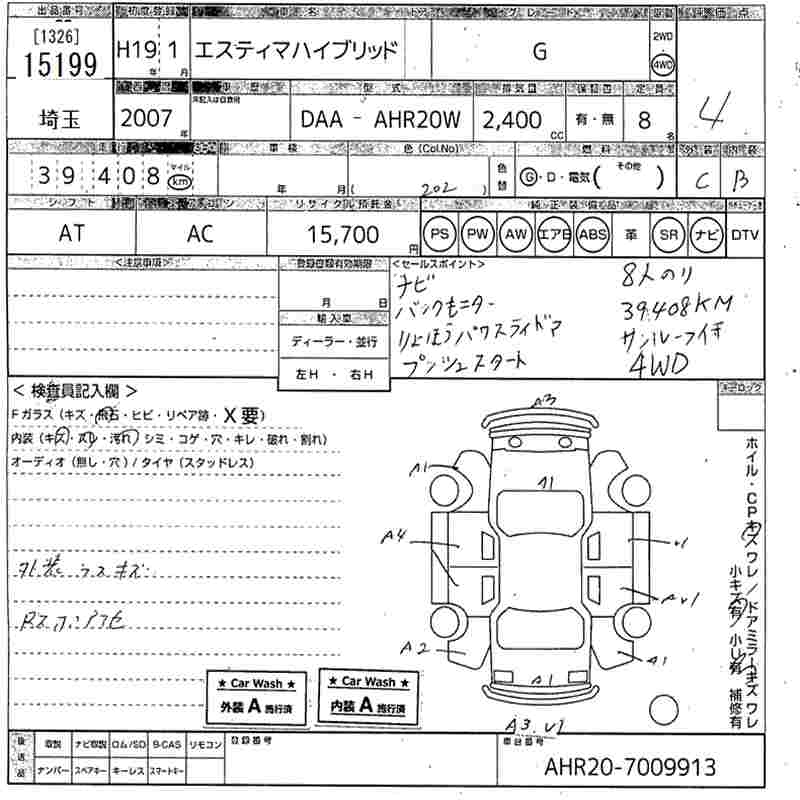 出品番号 初度登録 車名 ドア グレード 評価点
[1326]
15199
H19 1
年 月
エスティマハイブリッド
G
2WD
4WD
4
埼玉
2007
年
車歴
未記入は自家用
型式
DAA - AHR20W
排気量
2,400
CC
保証書
有・無
定員
8
名
走行
39,408
マイル
km
車検
年 月
色(Col.No)
( 202 )
色替
燃料
G・D・電気( その他 )
外装 内装
C B
シフト エアコン リサイクル預託金 純正装備品
AT
AC
15,700
円
PS PW AW エアB ABS 革 SR ナビ DTV
<注意事項>
登録書類有効期限
月 日
輸入車
ディーラー・並行
左H ・ 右H
<セールスポイント>
ナビ
8人のり
バックモニター
39.408KM
りょうほうパワースライドドア
サンルーフ付
プッシュスタート
4WD
< 検査員記入欄 >
Fガラス (キズ・飛石・ヒビ・リペア跡・X要)
内装 (キズ・ヌレ・汚れ) シミ・コゲ・穴・キレ・破れ・割れ)
オーディオ (無し・穴) / タイヤ (スタッドレス)
外装 ラスキズ
キーロック
ホイル・CPキズワレ / ドアミラーキズワレ
小キズ有 / 小凹有 補修有
A3
A1
A1
A4
U1
AU1
A2
A1
A1
A3.U1
★ Car Wash ★
外装 A 施行済
★ Car Wash ★
内装 A 施行済
後送品
取説 ナビ取説 ロム/SD B-CAS リモコン
ナンバー スペアキー キーレス スマートキー
登録番号
車台番号
AHR20-7009913